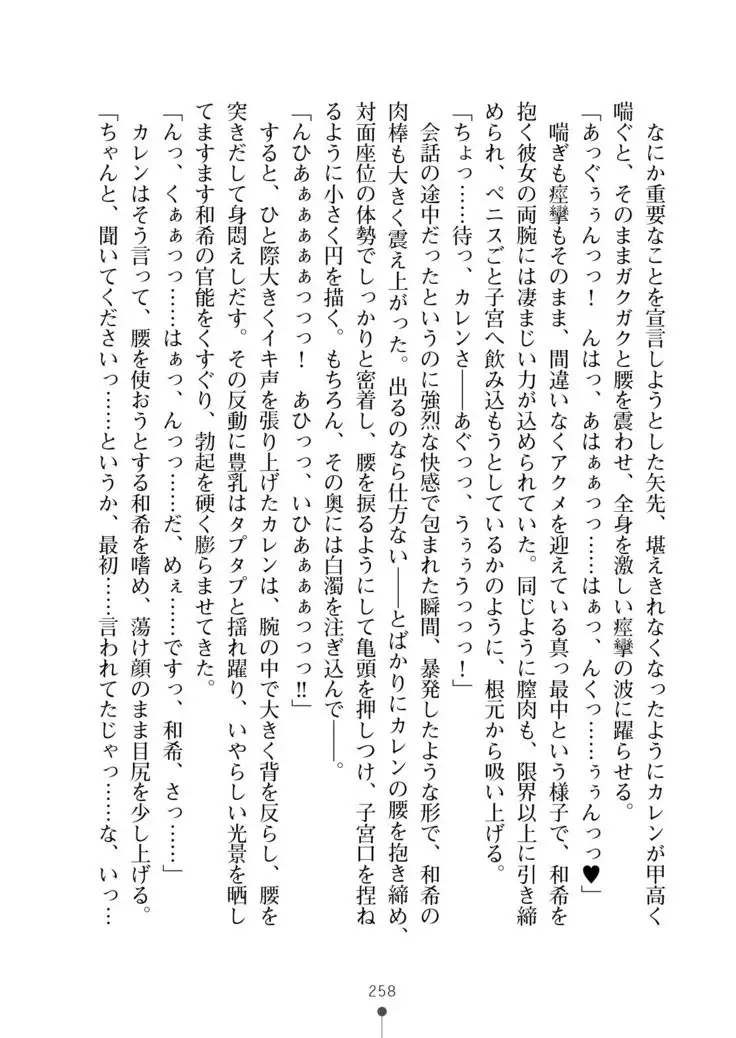 なにか重要なことを宣言しようとした矢先、堪えきれなくなったようにカレンが甲高く
喘ぐと、そのままガクガクと腰を震わせ、全身を激しい痙攣の波に躍らせる。
「あっぐぅぅんっっ！　んはっ、あはぁぁっっ……はぁっ、んくっ……ぅぅんっっ♥」
喘ぎも痙攣もそのまま、間違いなくアクメを迎えている真っ最中という様子で、和希を
抱く彼女の両腕には凄まじい力が込められていた。同じように膣肉も、限界以上に引き締
められ、ペニスごと子宮へ飲み込もうとしているかのように、根元から吸い上げる。
「ちょっ……待っ、カレンさ――あぐっっ、うぅぅうっっっ！」
会話の途中だったというのに強烈な快感で包まれた瞬間、暴発したような形で、和希の
肉棒も大きく震え上がった。出るのなら仕方ない――とばかりにカレンの腰を抱き締め、
対面座位の体勢でしっかりと密着し、腰を捩るようにして亀頭を押しつけ、子宮口を捏ね
るように小さく円を描く。もちろん、その奥には白濁を注ぎ込んで――。
「んひあぁぁぁぁぁっっっ！　あひっっ、いひあぁぁぁっっっ!!」
すると、ひと際大きくイキ声を張り上げたカレンは、腕の中で大きく背を反らし、腰を
突きだして身悶えしだす。その反動に豊乳はタプタプと揺れ躍り、いやらしい光景を晒し
てますます和希の官能をくすぐり、勃起を硬く膨らませてきた。
「んっ、くぁぁっっ……はぁっ、んっっ……だ、めぇ……ですっ、和希、さっ……」
カレンはそう言って、腰を使おうとする和希を嗜め、蕩け顔のまま目尻を少し上げる。
「ちゃんと、聞いてくださいっ……というか、最初……言われてたじゃっ……な、いっ…
258